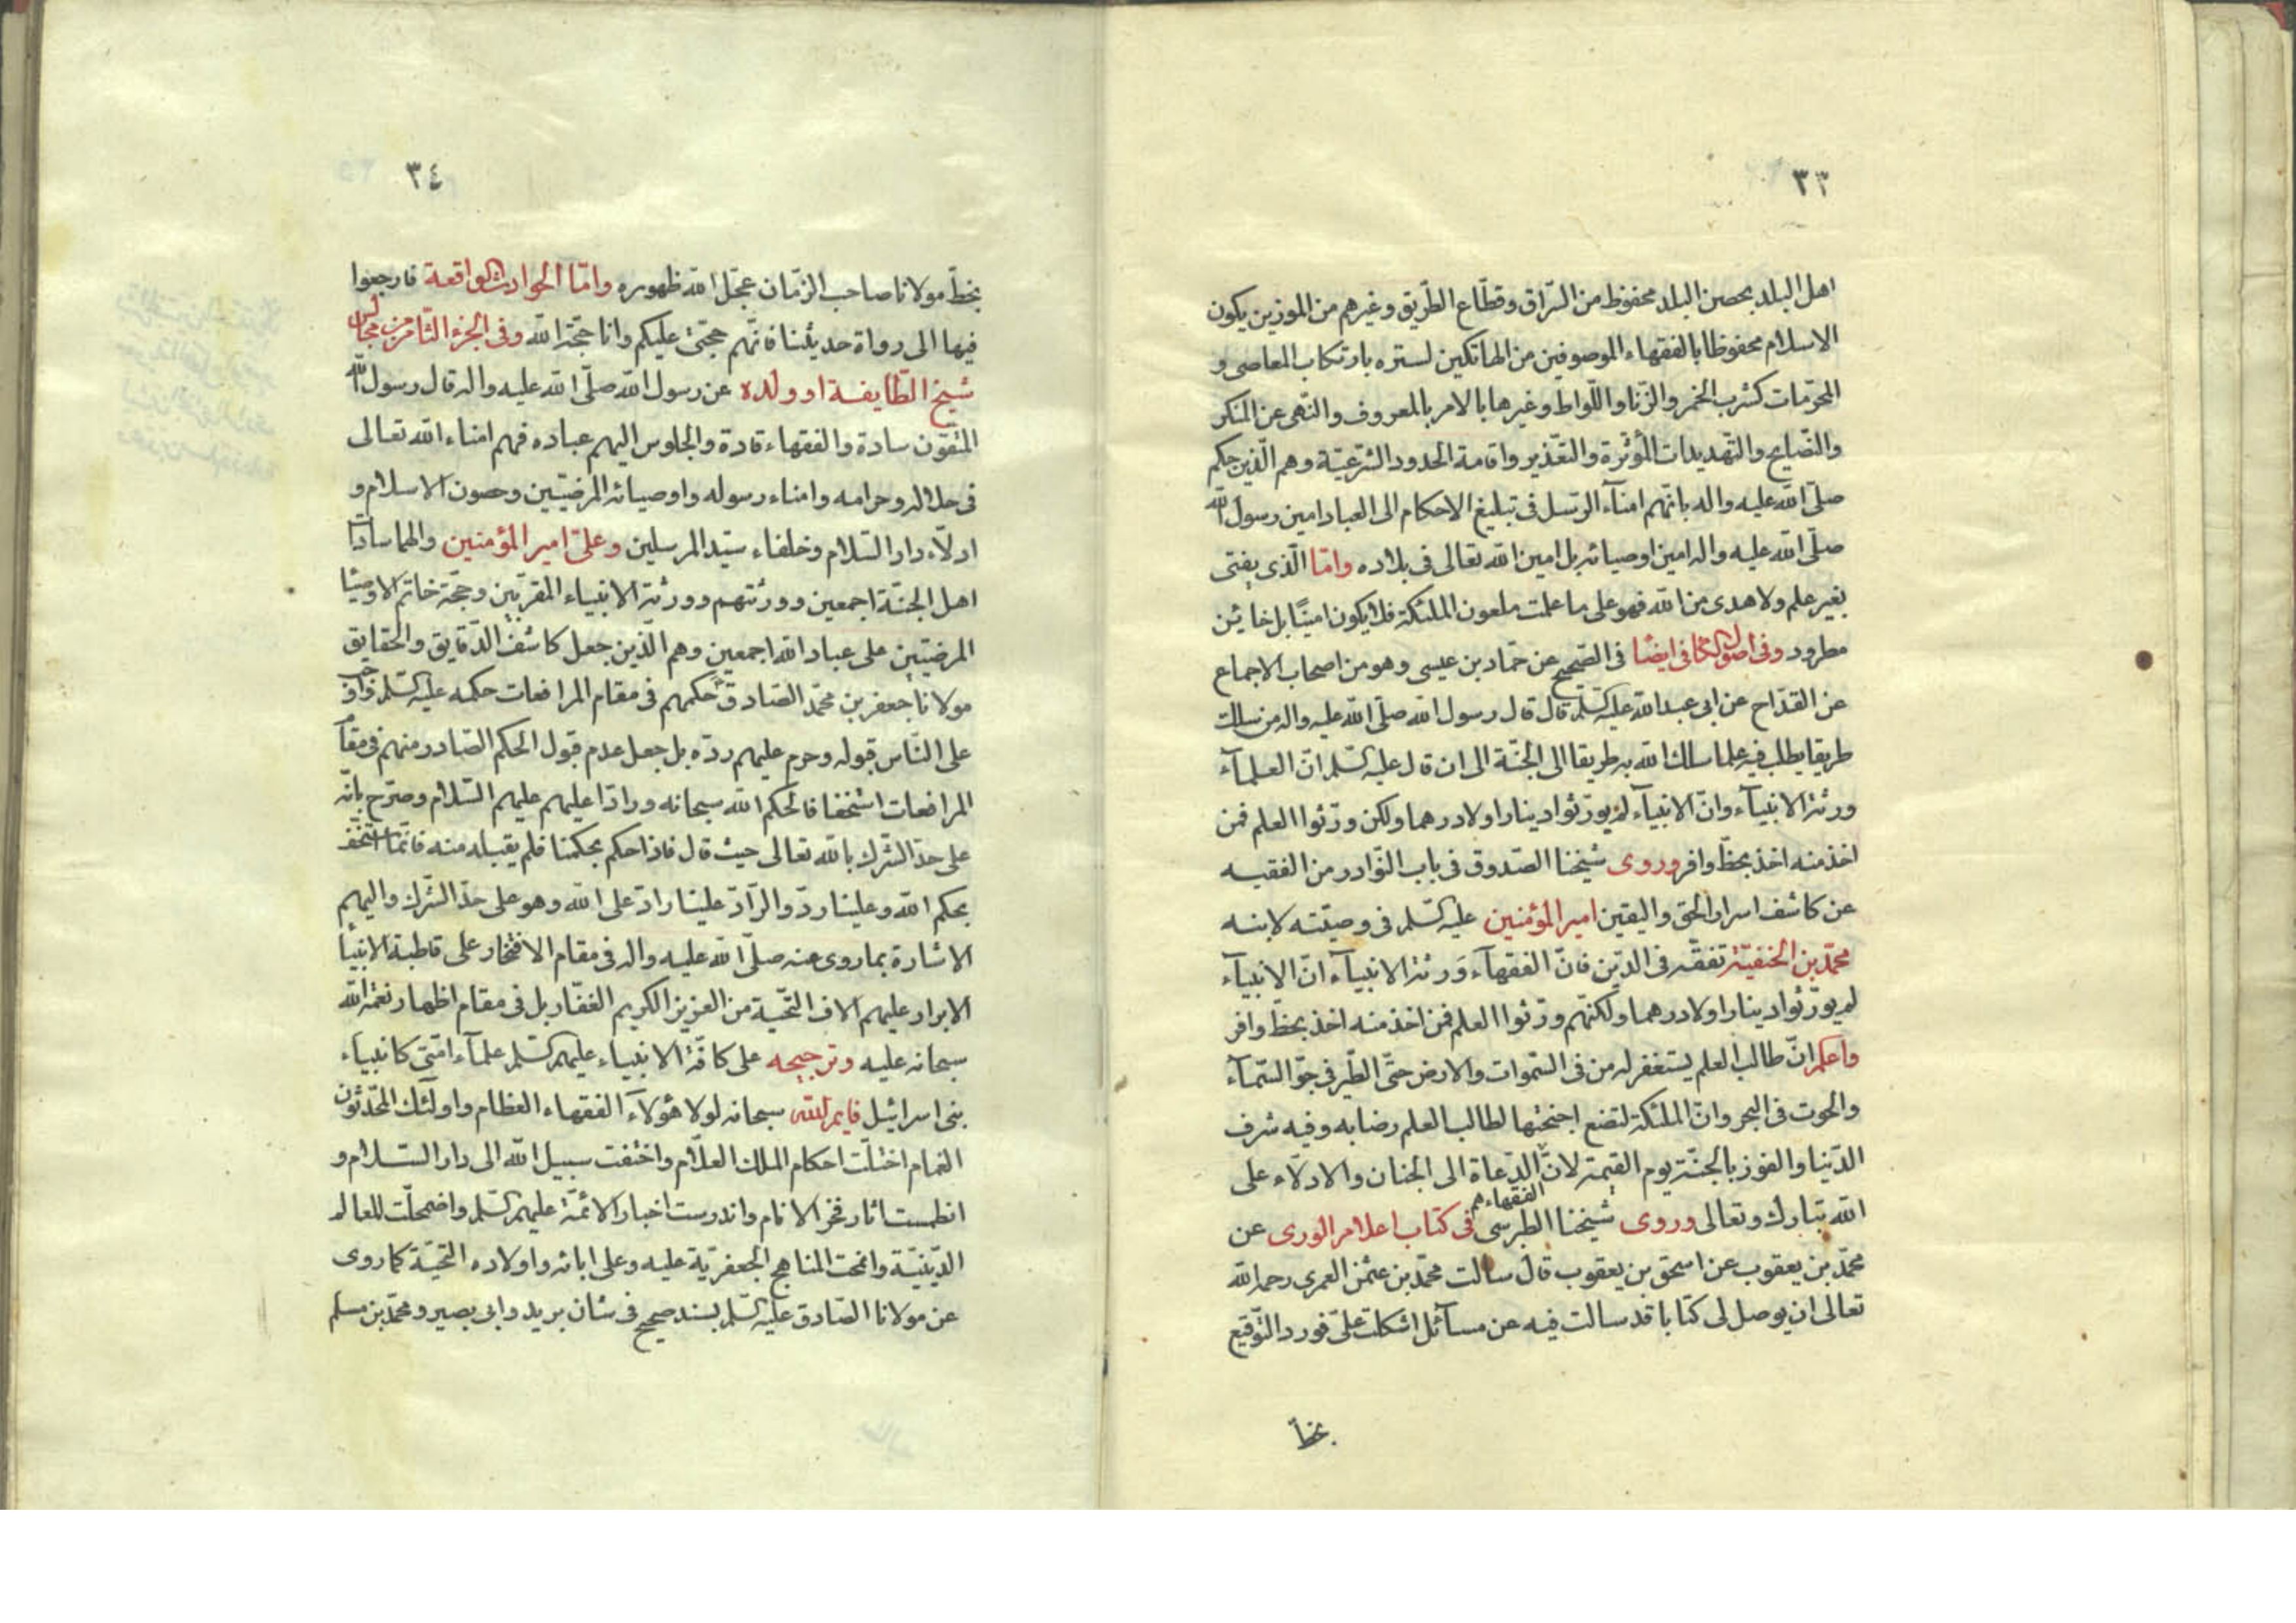 ٣٣
اهل البلد بحصن البلد محفوظ من السّراق وقطّاع الطّريق وغيرهم من الموزين يكون
الاسلام محفوظا بالفقهاء الموصوفين من الهاتكين لستره بارتكاب المعاصى و
المحرّمات كشرب الخمر والزّنا واللّواط وغيرها بالامر بالمعروف والنّهى عن المنكر
والنّصايح والتّهديدات المؤثرة والتعّذير واقامة الحدود الشّرعيّة وهم الّذين حكم
صلّى الله عليه واله بانّهم امنآء الرّسل فى تبليغ الاحكام الى العباد امين رسول الله
صلّى الله عليه واله امين اوصيائه بل امين الله تعالى فى بلاده وامّا الّذى يفتى
بغير علم ولا هدى من الله فهو على ما علمت ملعون الملئكة فلا يكون امينًا بل خايئن
مطرود وفى اصول الكافى ايضًا فى الصّحيح عن حمّاد بن عيسى وهو من اصحاب الاجماع
عن القدّاح عن ابى عبد الله عليه السّلم قال قال رسول الله صلّى الله عليه واله من سلك
طريقا يطلب فيه علما سلك الله به طريقا الى الجنّة الى ان قال عليه السّلم انّ العلمآء
ورثة الانبيآء وانّ الانبيآء لم يورّثوا دينارا ولا درهما ولكن ورّثوا العلم فمن
اخذ منه اخذ بحظّ وافر وروى شيخنا الصّدوق فى باب النّوادر من الفقيه
عن كاشف اسرار الحق واليقين امير المؤمنين عليه السّلم فى وصيّته لابنه
محمّد بن الحنفيّة تفقّه فى الدّين فانّ الفقهآء وَرثة الانبيآء انّ الانبيآء
لم يورّثوا دينارا ولا درهما ولكنّهم ورّثوا العلم فمن اخذ منه اخذ بحظّ وافر
واعلم انّ طالب العلم يستغفر له من فى السّموات والارض حتّى الطّير فى جوّ السّمآء
والحوت فى البحر وانّ الملئكة لتضع اجنحتها لطالب العلم رضا به وفيه شرف
الدّينا والفوز بالجنّة يوم القيمة لانّ الدّعاة الى الجنان والادلّاء على
الفقهاء هم
الله تبارك وتعالى وروى شيخنا الطبرسى فى كتاب اعلام الورى عن
محمّد بن يعقوب عن اسحق بن يعقوب قال سالت محمّد بن عثمن العمرى رحمه الله
تعالى ان يوصل لى كتابا قد سالت فيه عن مسآئل اشكلت علىّ فورد التّوقيع
بخطّ
٣٤
بخطّ مولانا صاحب الزّمان عجّل الله ظهوره وامّا الحوادث الواقعة فارجعوا
فيها الى رواة حديثنا فانّهم حجّتى عليكم وانا حجّة الله وفى الجزء الثّامن من مجالس
شيخ الطّايفة او ولده عن رسول الله صلّى الله عليه واله قال رسول الله
المتّقون سادة والفقهاء قادة والجلوس اليهم عباده فهم امناء الله تعالى
فى حلاله وحرامه وامناء رسوله واوصيائه المرضيّين وحصون الاسلام و
ادلّاء دار السّلام وخلفاء سيّد المرسلين وعلىّ امير المؤمنين والهما سادات
اهل الجنّة اجمعين وورثتهم وورثة الانبياء المقرّبين وحجّة خاتم الاوصيا
المرضيّين على عباد الله اجمعين وهم الّذين جعل كاشف الدّقايق والحقايق
مولانا جعفر بن محمّد الصّادق حكمهم فى مقام المرافعات حكمه عليه السّلم
على النّاس قبوله وحرم عليهم ردّه بل جعل عدم قبول الحكم الصّادر منهم فى مقام
المرافعات استخفافا لحكم الله سبحانه ورادّا عليهم عليهم السّلام وصرّح بانّه
على حدّ الشّرك بالله تعالى حيث قال فاذا حكم بحكمنا فلم يقبله منه فانّما استخفّ
بحكم الله وعلينا ردّ والرّادّ علينا رادّ على الله وهو على حدّ الشّرك واليهم
الاشارة بما روى عنه صلّى الله عليه واله فى مقام الافتخار على قاطبة الانبيآ
الابرار عليهم الاف التّحيّة من العزيز الكريم الغفّار بل فى مقام اظهار نعمة الله
سبحانه عليه وترجيحه على كافّة الانبياء عليهم السّلم علمآء امّتى كانبيآء
بنى اسرائيل فايم الله سبحانه لولا هؤلآء الفقهاء العظام واولئك المحدّثون
الفخام اختلّت احكام الملك العلّام واختفت سبيل الله الى دار السّلام و
انطمست اثار فخر الانام واندرست اخبار الائمّة عليهم السّلم واضمحلّت المعالم
الدّينيّة وانمحت المناهج الجعفريّة عليه وعلى ابائه واولاده التّحيّة كما روى
عن مولانا الصّادق عليه السّلم بسند صحيح فى شان بريد وابى بصير ومحمّد بن مسلم